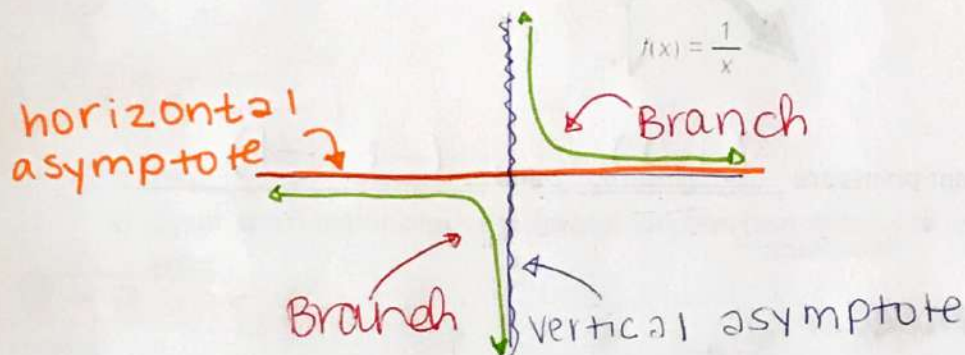 f(x) = 1/x
horizontal
asymptote
Branch
Branch
vertical asymptote